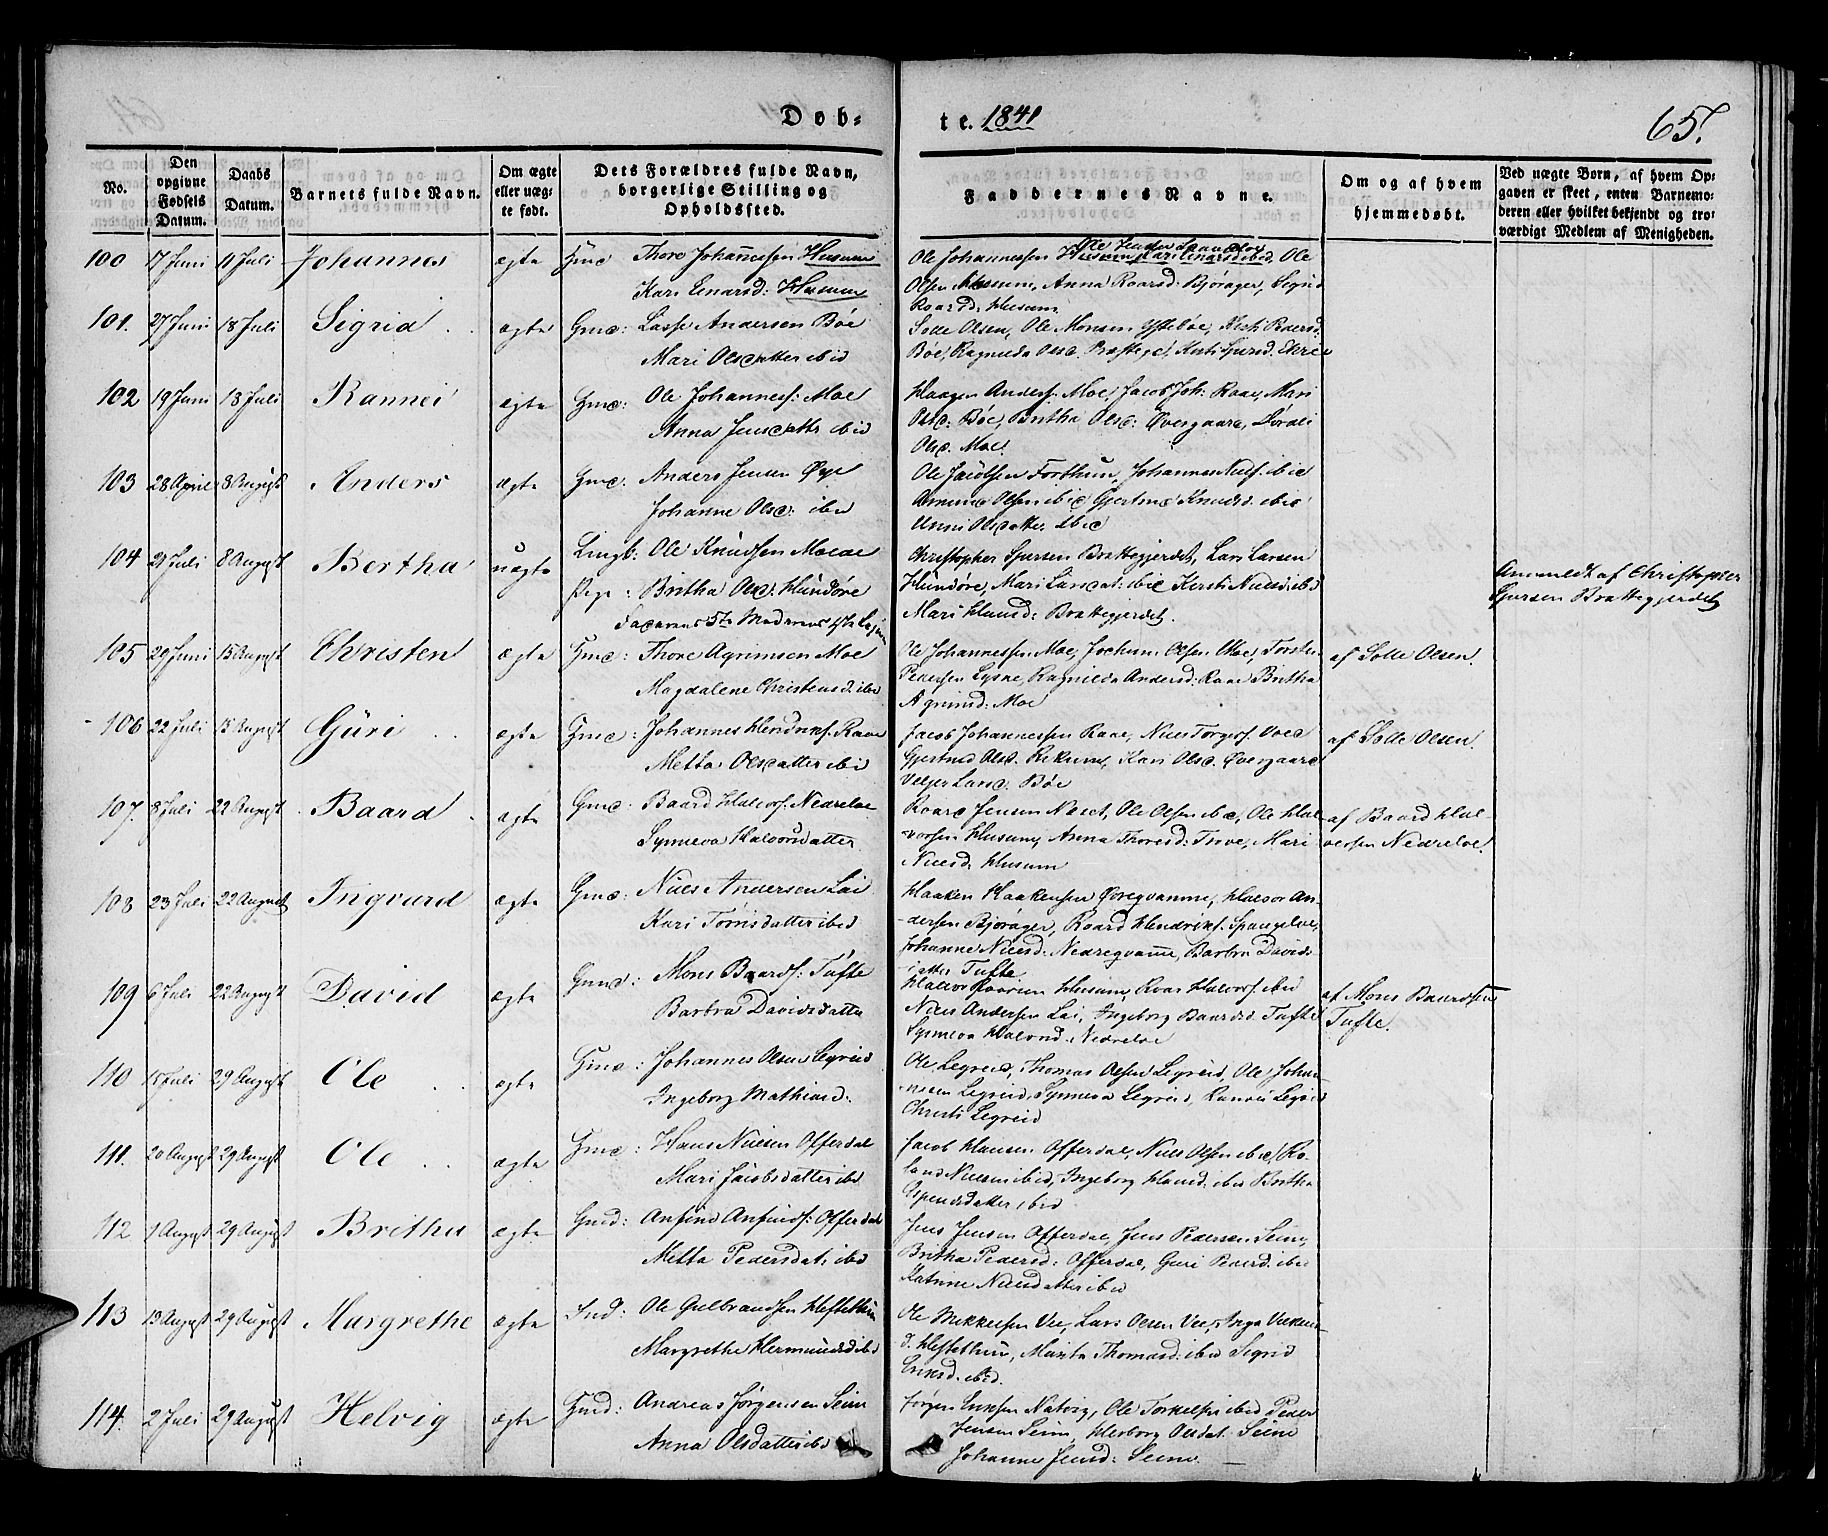 Døb- te. 1841 65.
No.
Den opgivne Fødsels Datum.
Daabs Datum.
Barnets fulde Navn.
Om ægte eller uæg- te født.
Dets Forældres fulde Navn, borgerlige Stilling og Opholdssted.
Faddernes Navne.
Om og af hvem hjemmedøbt.
Ved uægte Børn, af hvem Op- gaven er skeet, enten Barnemo- deren eller hvilket bekjendt og tro- værdigt Medlem af Menigheden.
100 7 Juni 11 Juli Johannes ægte Gmd Thore Johannessen Husum
Kari Einarsd: Husum
Ole Johannessen Husum, Kari Einarsd ibid, Ole
Olsen Husum, Anna Roarsd: Bjørager, Sigrid
Roarsd: Husum
101. 27 Juni 18 Juli Sigrid ægte Gmd: Lasse Andersen Bøe
Mari Olsdatter ibid
Solle Olsen, Ole Monsen Ystebøe, Kirsti Pedersd.
Bøe, Ragnilda Olsd.
102 19 Juni 18 Juli Rannei ægte Gmd: Ole Johanness: Moe
Anna Jensdattr ibid
Haagen Anders: Moe, Jacob Joh: Raae, Mari
Olsd: Bøe, Britha Olsd: Øvregaard,
Olsd. Moe.
103 28 April 8 August Anders ægte Gmd. Anders Jensen Øye
Johanne Olsd: ibid
Ole Jacobsen Forthun, Johannes Niels: ibid
Olsen ibid Gjertrud Knudsd. ibid
Anni Olsdatter ibid
104 21 Juli 8 August Bertha uægte Ungk: Ole Knudsen Moe
Pige: Britha Olsd: Hundøre
Faderens 5te Moderens 1ste Lejerm
Christopher Sjursen Brattegjerdet, Lars Larsen
Hundøre, Mari Larsdat: ibid Kirsti Nielsd: ibid
Mari Hansd: Brattegjerdet.
Anmeldt af Christopher
Sjursen Brattegjerdet
105 29 Juni 15 August Christen ægte Gmd: Thore Agrimsen Moe
Magdalene Christensd: ibid
Ole Johannessen Moe, Jochum Olsen Moe, Torsten
Pedersen Lysne, Ragnilda Andersd: Raae Britha
Agrimsd: Moe
af Solle Olsen.
106 22 Juli 15 August Guri ægte Gmd: Johannes Hendriks: Raae
Metta Olsdatter ibid
Jacob Johannessen Raae, Niels Torgers: Voll
Gjertrud Olsd. Rikum, Kari Olsd. Øvregaard
Larsd. Bøe
af Solle Olsen.
107. 8 Juli 22 August Baard ægte Gmd: Baard Halvors: Nedreloe
Synneva Halvorsdatter
Roard Jensen Næset, Ole Olsen ibid, Ole Hal-
vorsen Husum, Anna Thoresd: Trøve, Mari
Nielsd. Husum
af Baard Hal-
vorsen Nedreloe.
108 23 Juli 22 August Ingvard ægte Gmd: Niels Andersen Lai
Kari Tørrisdatter ibid
Haaken Haakensen Øvregvamme, Halvor An-
dersen Bjørager, Roard Hendriks: Spangeloe,
Johanne Nielsd: Nedregvamme, Barbra Davids-
datter Tufte
109 6 Juli 22 August David ægte Gmd: Mons Baards: Tufte
Barbra Davidsdatter
Halvor Roarsen Husum, Roar Halvors: ibid
Niels Andersen Lai, Ingeborg Baardsd: Tufte
Synneva Halvorsd. Nedreloe
af Mons Baardsen
Tufte.
110 15 Juli 29 August Ole ægte Gmd: Johannes Olsen Legreid
Ingeborg Mathiasd:
Ole Legreid, Thomas Olsen Legreid, Ole Johan-
nesen Legreid, Synneva Legreid, Rannei Legreid
Christi Legreid
111. 20 August 29 August Ole ægte Gmd: Hans Nielsen Offerdal
Mari Jacobsdatter ibid
Jacob Hansen Offerdal, Niels Olsen ibid, Ro-
land Nielsen ibid, Ingeborg Hansd: ibid Britha
Espensdatter ibid
112 1 August 29 August Britha ægte Gmd: Anfind Anfinds: Offerdal
Metta Pedersdat: ibid
Jens Jensen Offerdal, Jens Pedersen Seim,
Britha Pedersd: Offerdal, Guri Pedersd. ibid
Katrine Nielsdatter ibid
113 13 August 29 August Margrethe ægte Ind: Ole Gulbrandsen Hestethun
Margrethe Hermundsd ibid
Ole Mikkelsen Vee, Lars Olsen Vee, Inga
d. Hestethun, Marita Thomasd: ibid Sigrid
Eriksd: ibid.
114. 2 Juli 29 August Helvig ægte Gmd: Andreas Jørgensen Seim
Anna Olsdatter ibid
Jørgen Eriksen Natvig, Ole Torkelsen ibid Peder
Jensen Seim, Herborg Olsdat. Seim
Johanne Jensd: Seim